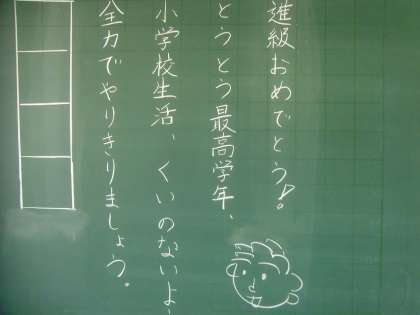 進級おめでとう!
とうとう最高学年、
小学校生活、くいのないよ
全力でやりきりましょう。